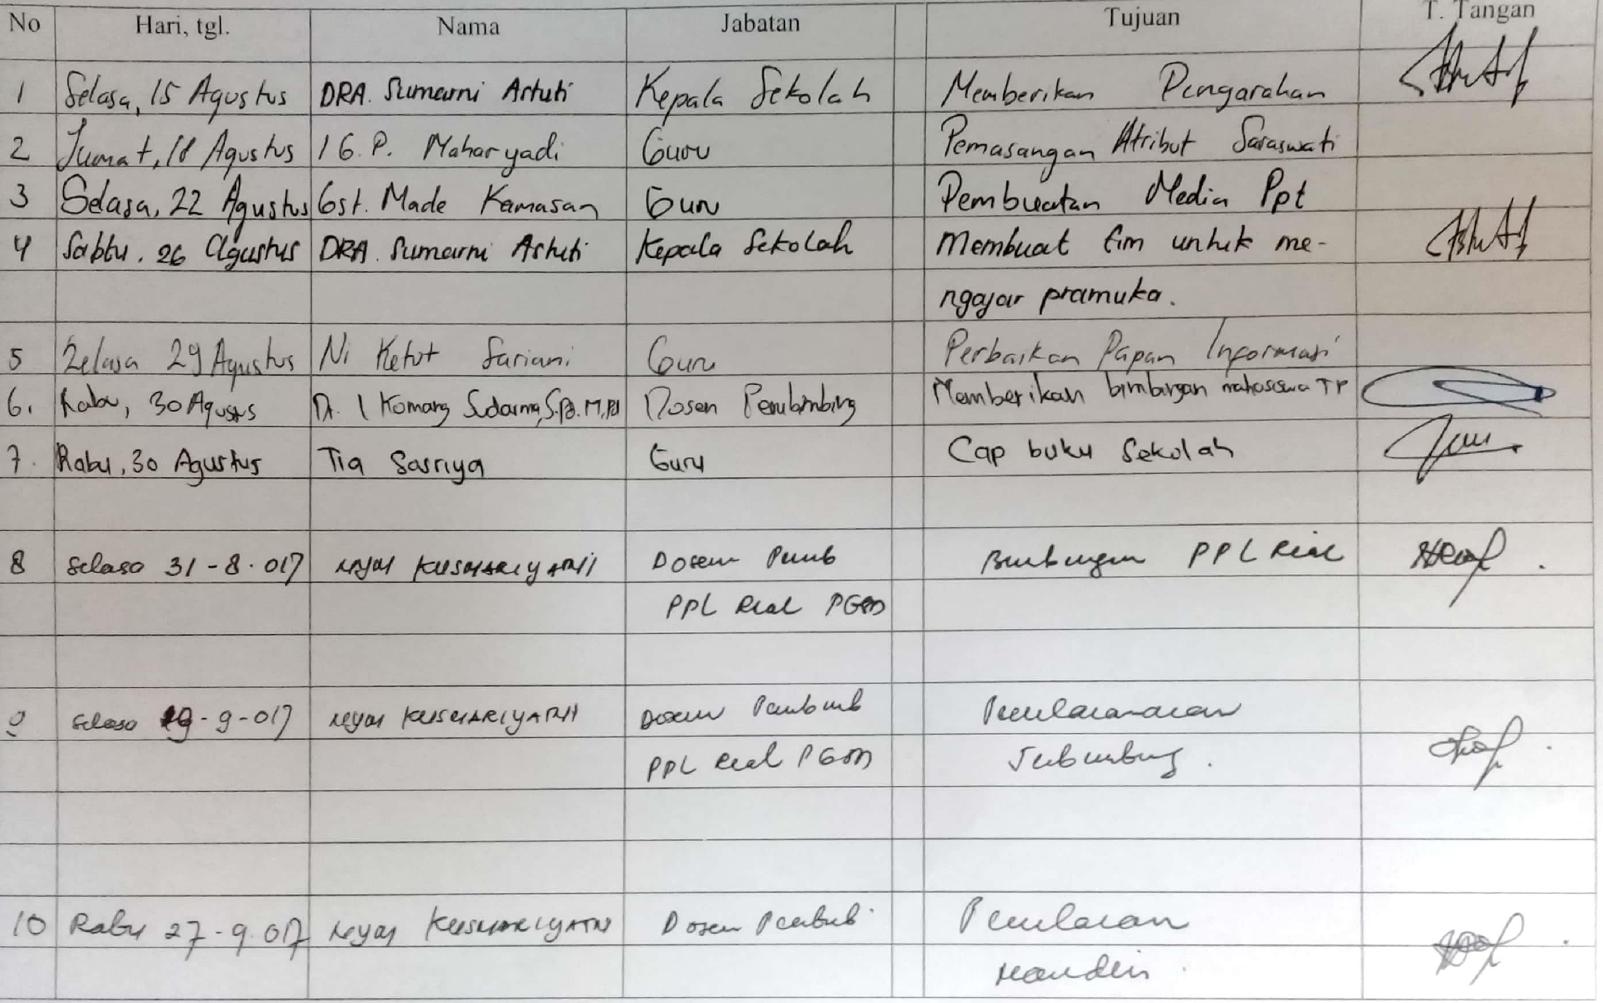 No Hari, tgl. Nama Jabatan Tujuan T. Tangan
1 Selasa, 15 Agustus DRA. Sumarni Astuti Kepala Sekolah Memberikan Pengarahan
2 Jumat, 18 Agustus I G. P. Maharyadi Guru Pemasangan Atribut Saraswati
3 Selasa, 22 Agustus Gst. Made Kamasan Guru Pembuatan Media Ppt
4 Sabtu, 26 Agustus DRA. Sumarni Astuti Kepala Sekolah Membuat tim untuk me-
ngajar pramuka.
5 Selasa 29 Agustus Ni Ketut Sariani Guru Perbaikan Papan Informasi
6. Rabu, 30 Agustus Dr. I Komang Sudarma, S.Pd. M.Pd Dosen Pembimbing Memberikan bimbingan mahasiswa TP
7. Rabu, 30 Agustus Tia Sasriya Guru Cap buku Sekolah
8 Selasa 31-8-017 KUSMARIYATNI Dosen Pemb Bimbingan PPL Real
PPL Real PGSD
9 Selasa 19-9-017 KUSMARIYATNI Dosen Pembimb
PPL Real PGSD Terbimbing.
10 Rabu 27-9-017 KUSMARIYATNI Dosen Penilaian
Mandiri